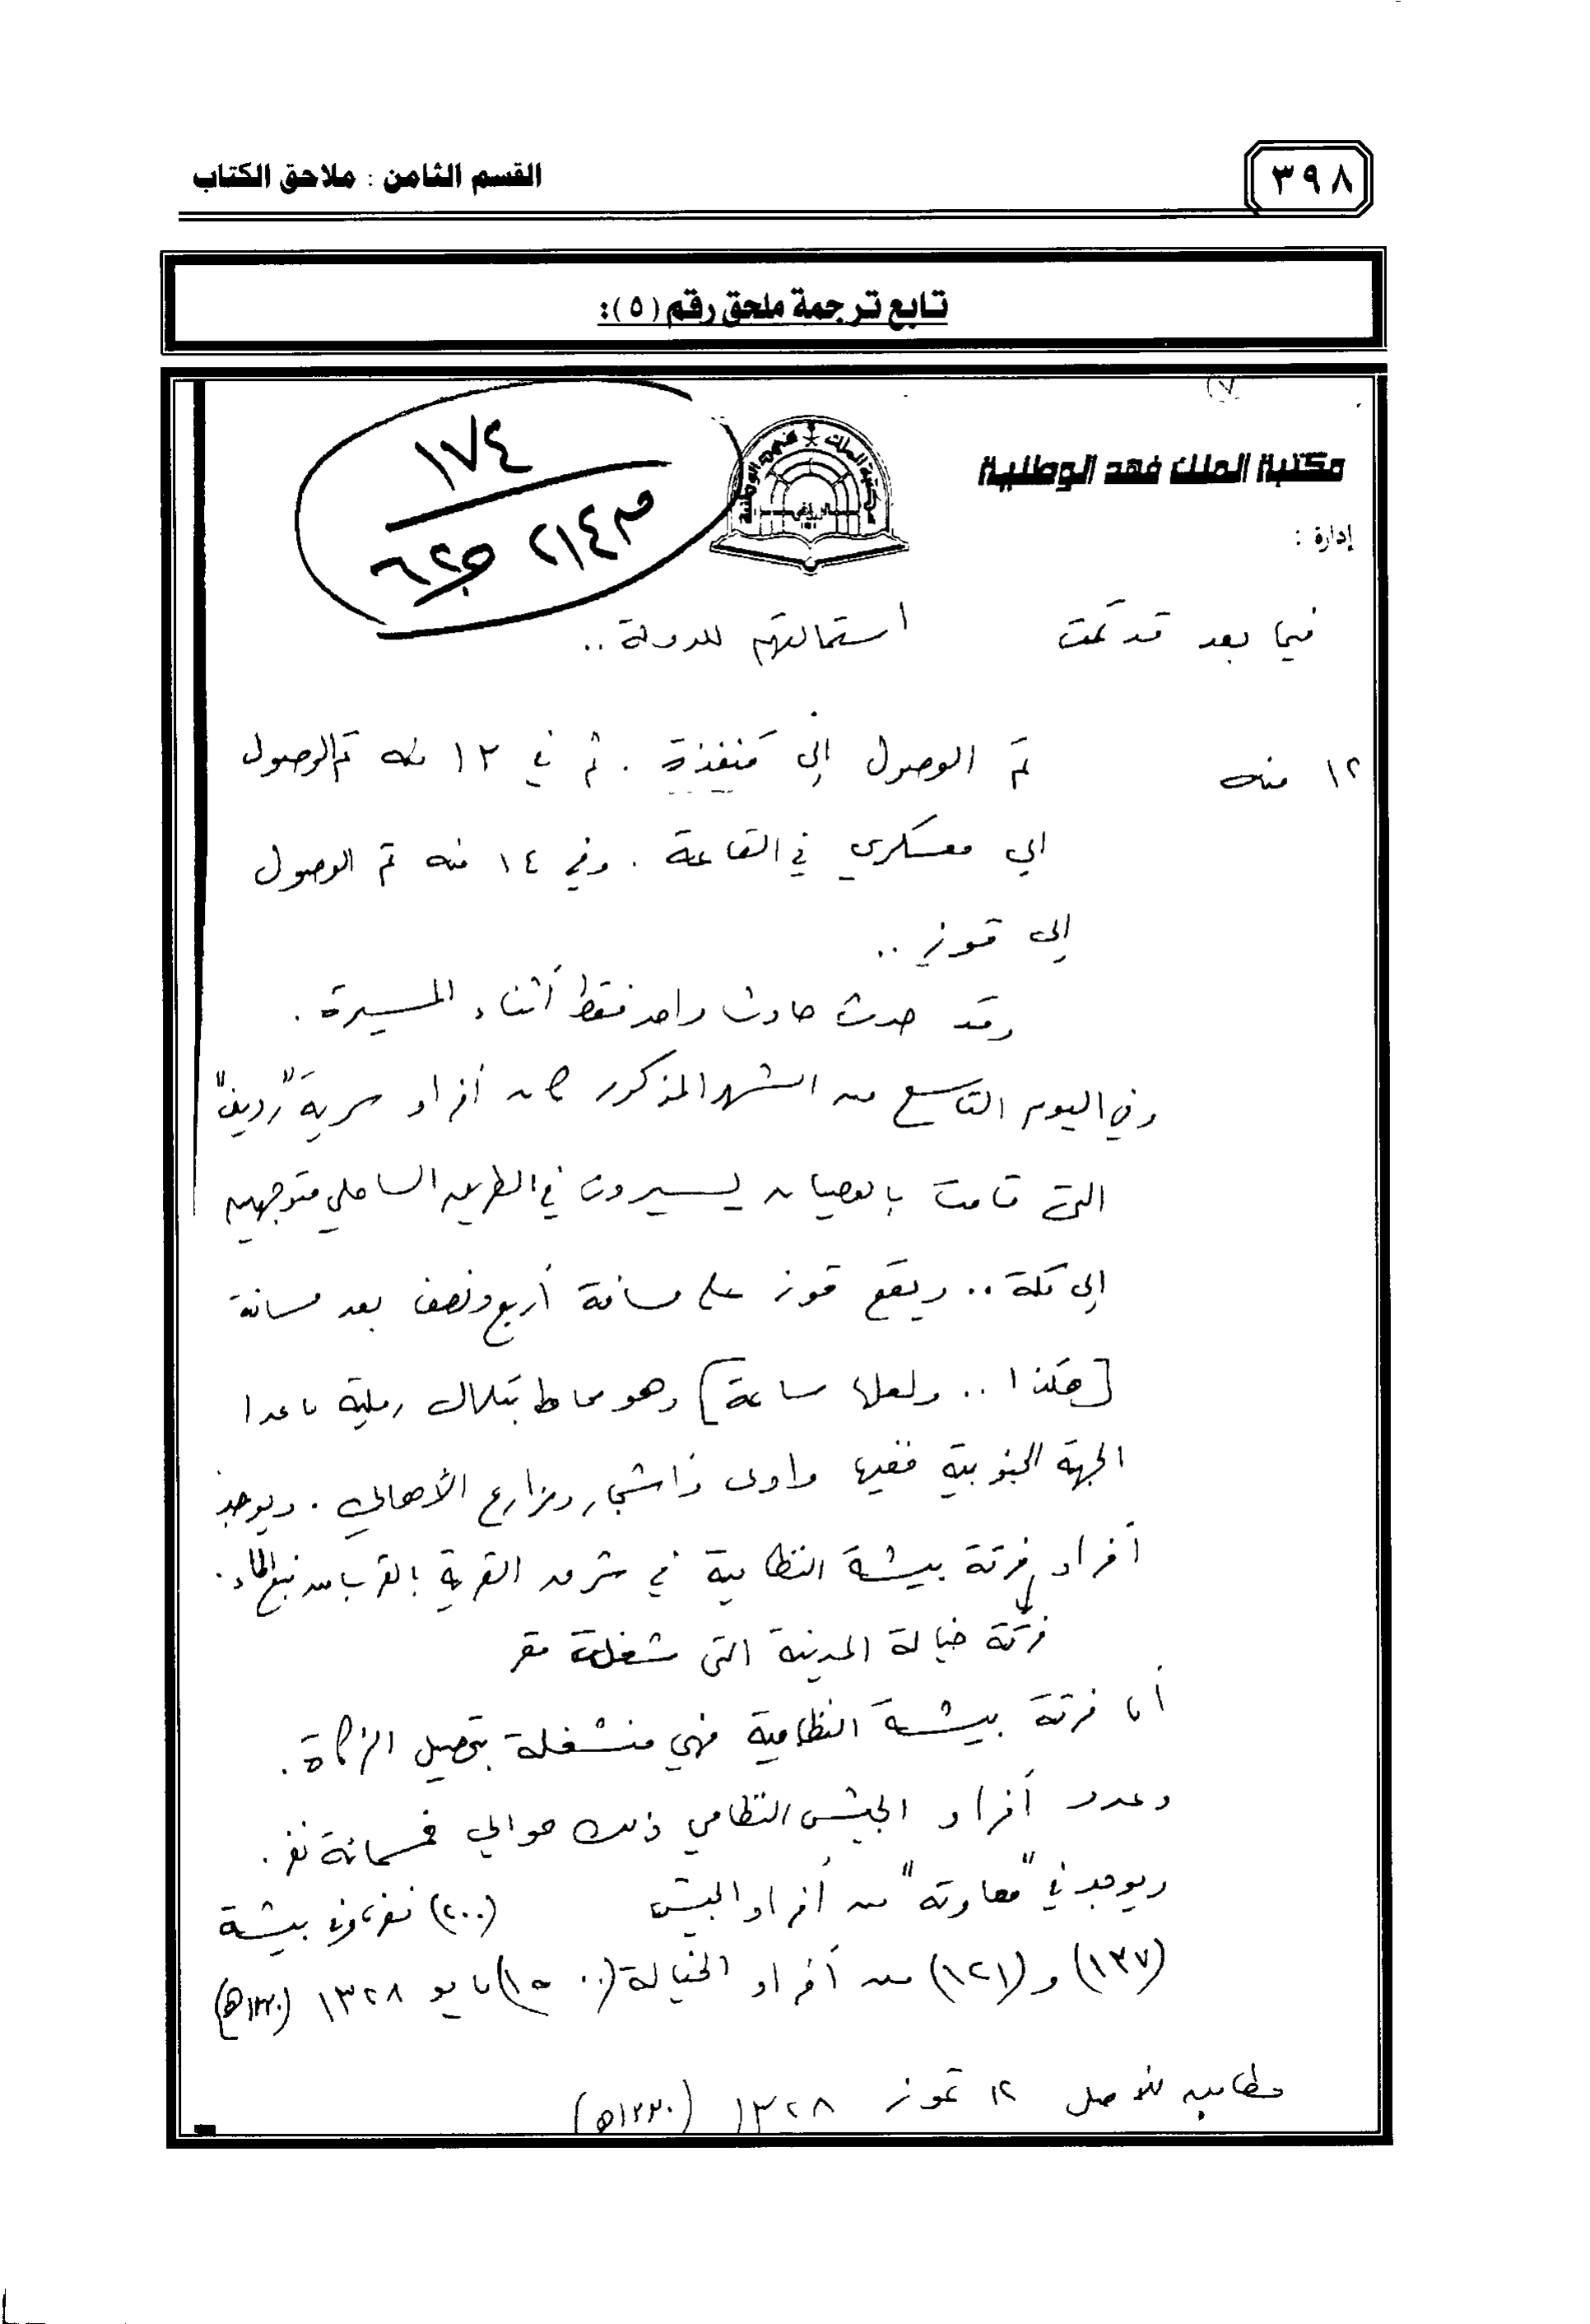 ٣٩٨
القسم الثامن : ملاحق الكتاب
تابع ترجمة ملحق رقم (٥):
مكتبة الملك فهد الوطنية
إدارة :
١٧٤
فيما بعد قد تمت استمالتهم للدولة ..
١٢ منه تم الوصول إلى قنفذة . ثم في ١٣ منه تم الوصول
الى معسكري في القاعة . وفي ١٤ منه تم الوصول
إلى قوز ..
وقد حدث حادث واحد فقط أثناء المسيرة .
وفي اليوم التاسع من الشهر المذكور كان أفراد سرية "رديف"
التى قامت بالعصيان يسيرون في الطريق الساحلي متوجهين
إلى مكة .. ويقع قوز على مسافة أربع ونصف بعد مسافة
[هكذا .. ولعلها ساعة] وهو محاط بتلال رملية ما عدا
الجهة الجنوبية ففيها وادى ذا شجار ومزارع الأهالي . ويوجد
أفراد فرقة بيشة النظامية في شرق القرية بالقرب من نبع الماء .
فرقة خيالة المدينة التى شغلت مقر
أما فرقة بيشة النظامية فهي منشغلة بتحصيل الزكاة .
وعدد أفراد الجيش النظامي ذلك حوالي خمسمائة نفر .
ويوجد في "معاوته" من أفراد الجيش (٢٠٠) نفر بيشة
(١٣٧) و (١٢١) من أفراد الخيالة (١٥٠٠) مايو ١٣٢٨ (١٣٣٠هـ)
مطابق للأصل ١٢ تموز ١٣٢٨ (١٣٣٠هـ)